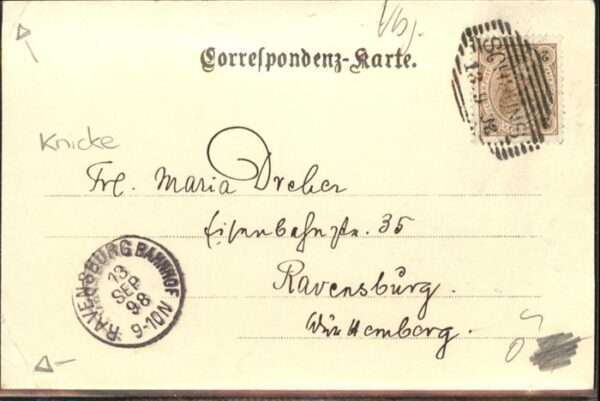 Correspondenz-Karte.
Knicke
Frl. Maria Dreher
Eisenbahnstr. 35
Ravensburg.
Württemberg.
RAVENSBURG BAHNHOF
13
SEP.
98
9-10N